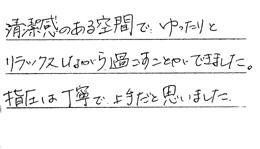 清潔感のある空間で、ゆったりと
リラックスしながら過ごすことができました。
指圧は丁寧で、上手だと思いました。